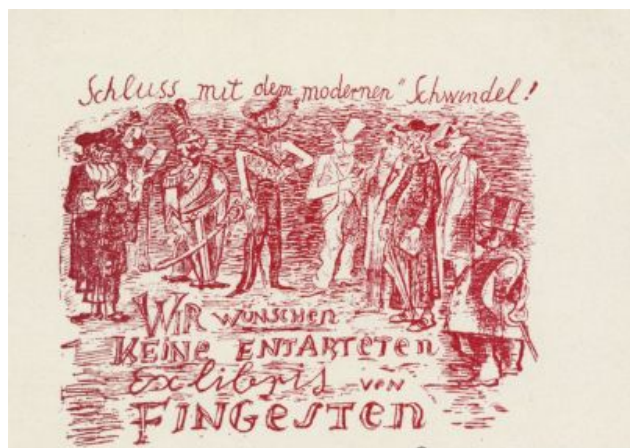 Schluss mit dem „modernen" Schwindel!
WIR WÜNSCHEN
KEINE ENTARTETEN
Exlibris VON
FINGESTEN